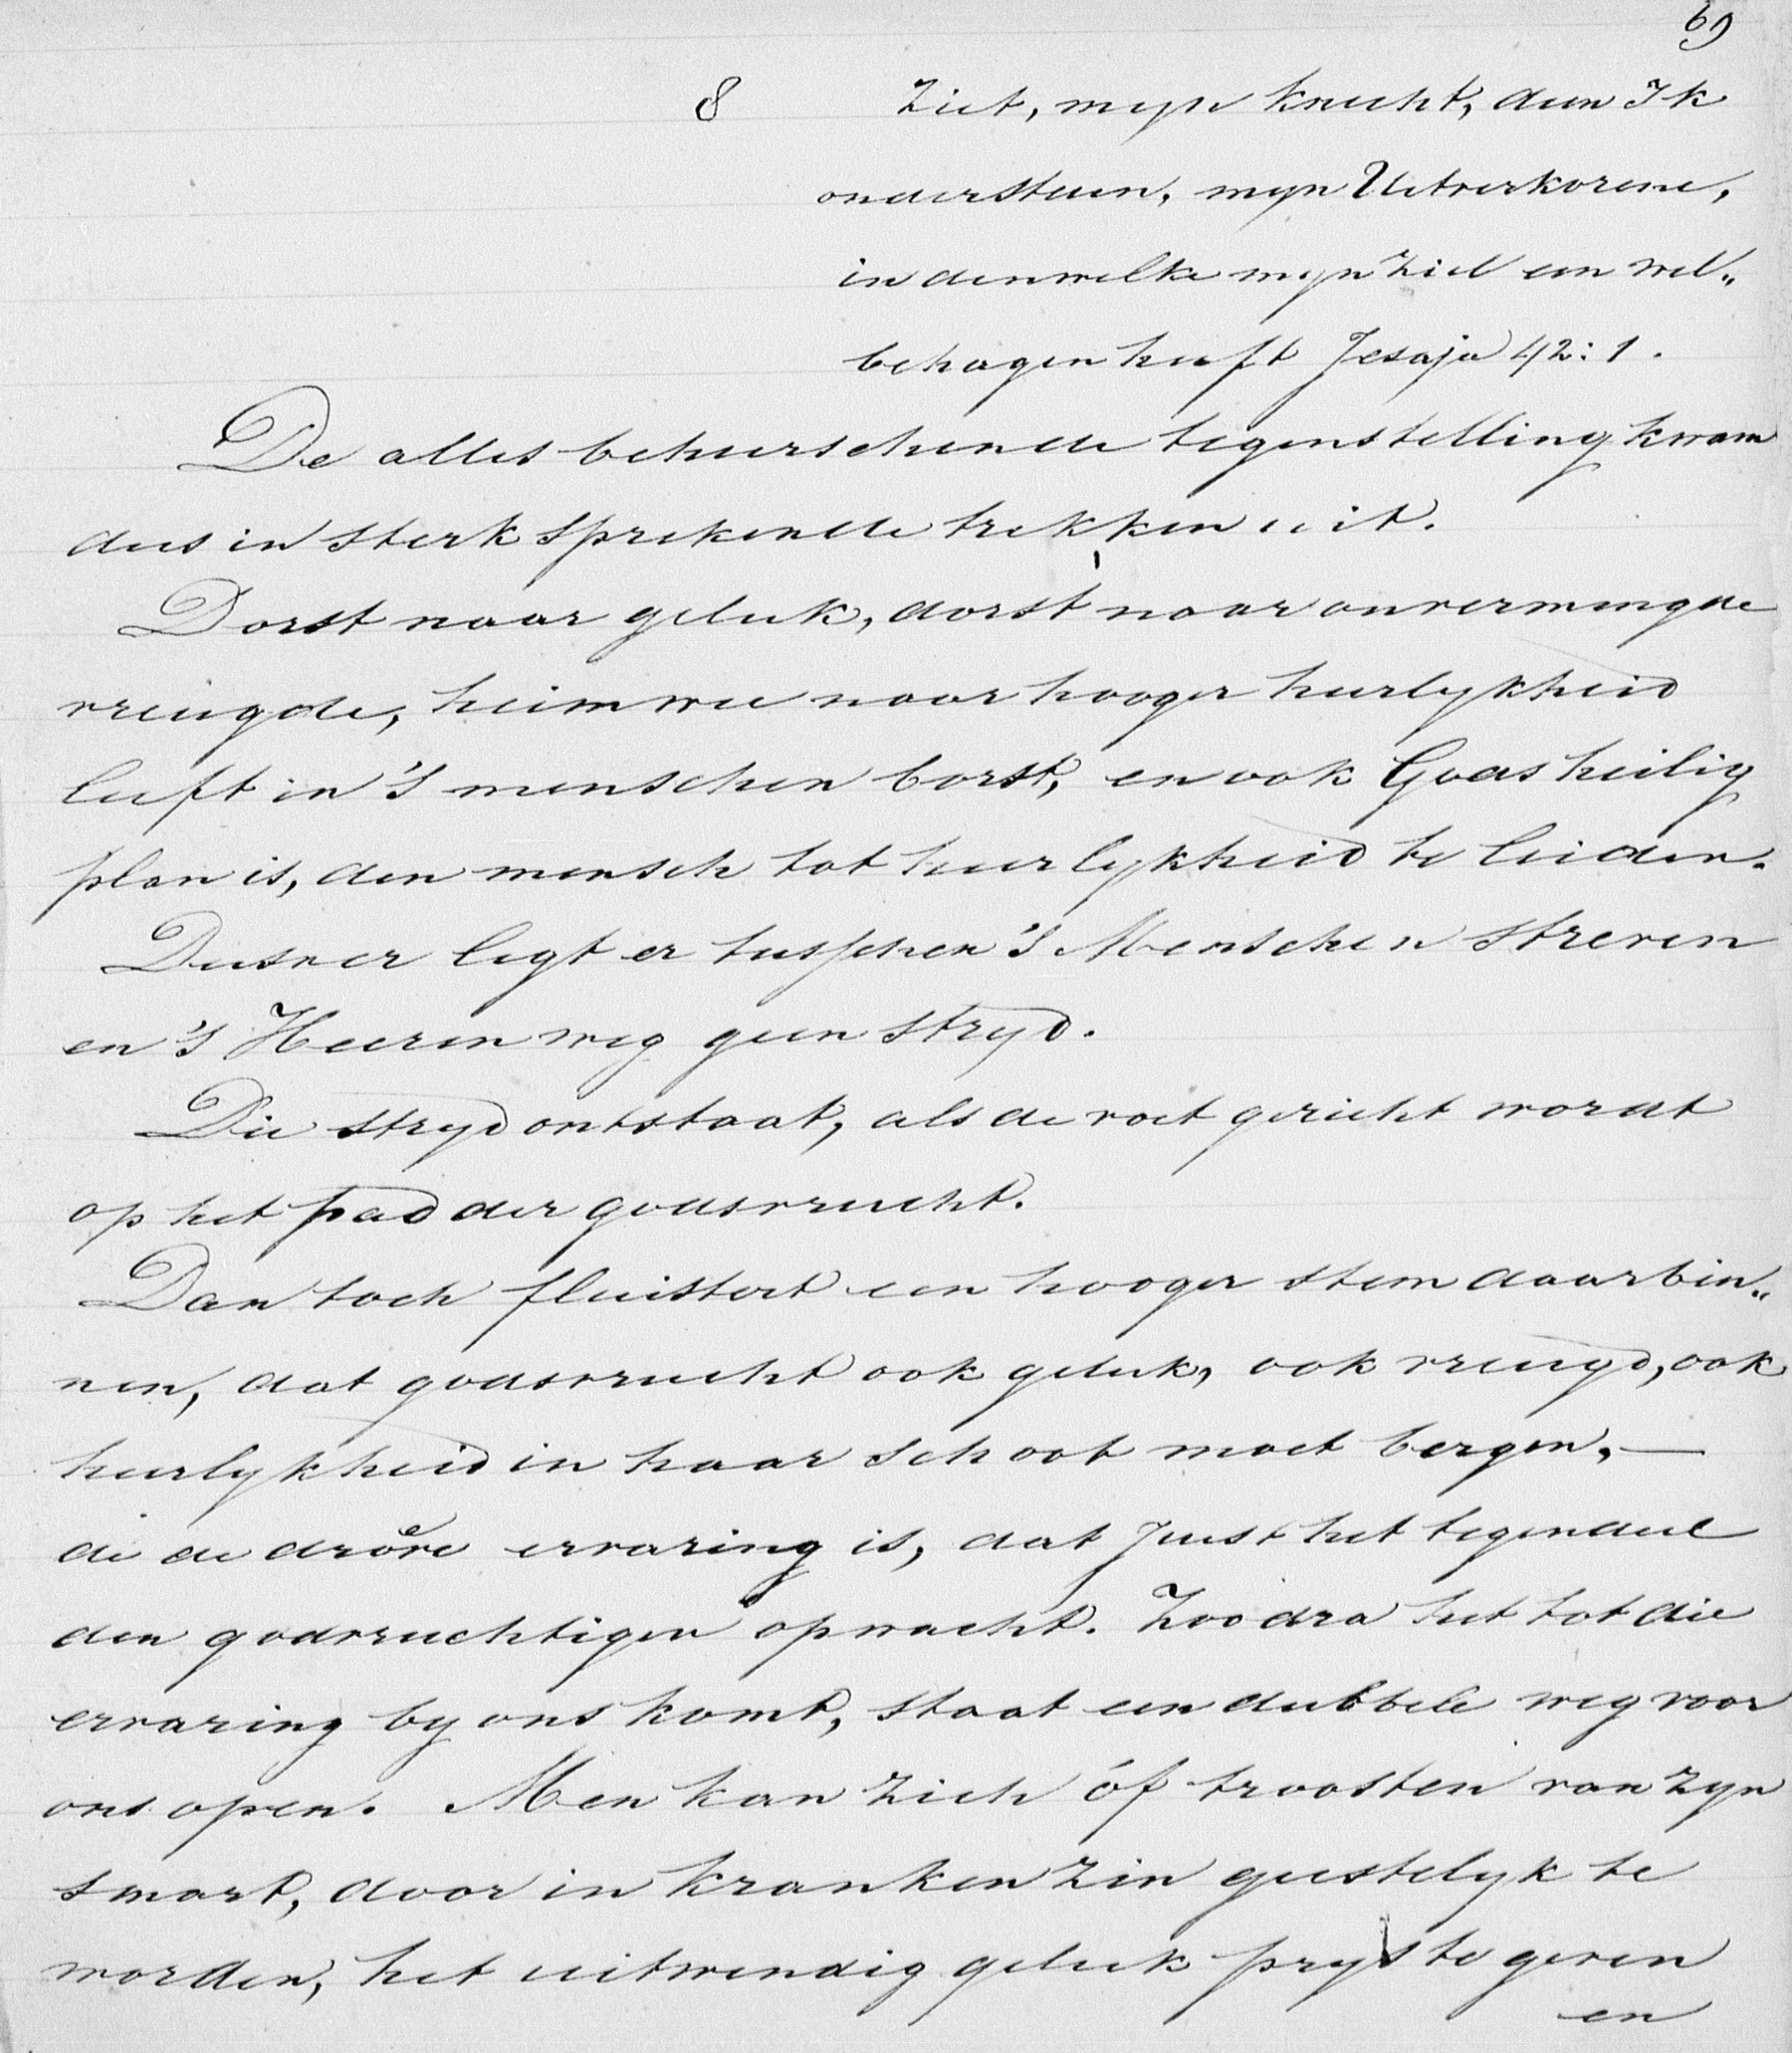 69
8 Ziet, myn knecht, dien Ik
ondersteun, myn Uitverkorene,
in denwelke myn Ziel een wel„
behagen heeft Jesaja 42:1.
De alles beheerschende tegenstelling kwam
dus in sterk sprekende trekken uit.
Dorst naar geluk, dorst naar onvermengde
vreugde, heimwee naar hooger heerlykheid
leeft in 's menschen borst, en ook Gods heilig
plan is, den mensch tot heerlykheid te leiden.
Dusver ligt er tusschen 's Menschen streven
en 's Heeren weg geen stryd.
Die stryd ontstaat, als de voet gericht wordt
op het pad der godsvrucht.
Dan toch fluistert een hooger stem daarbin„
nen, dat godsvrucht ook geluk, ook vreugd, ook
heerlykheid in haar schoot moet bergen, —
de droeve ervaring is, dat juist het tegendeel
den godvruchtigen opwacht. Zoodra het tot die
ervaring by ons komt, staat een dubbele weg voor
ons open. Men kan zich óf troosten van zyn
smart, door in kranken zin geestelyk te
worden, het uitwendig geluk prys te geven
en